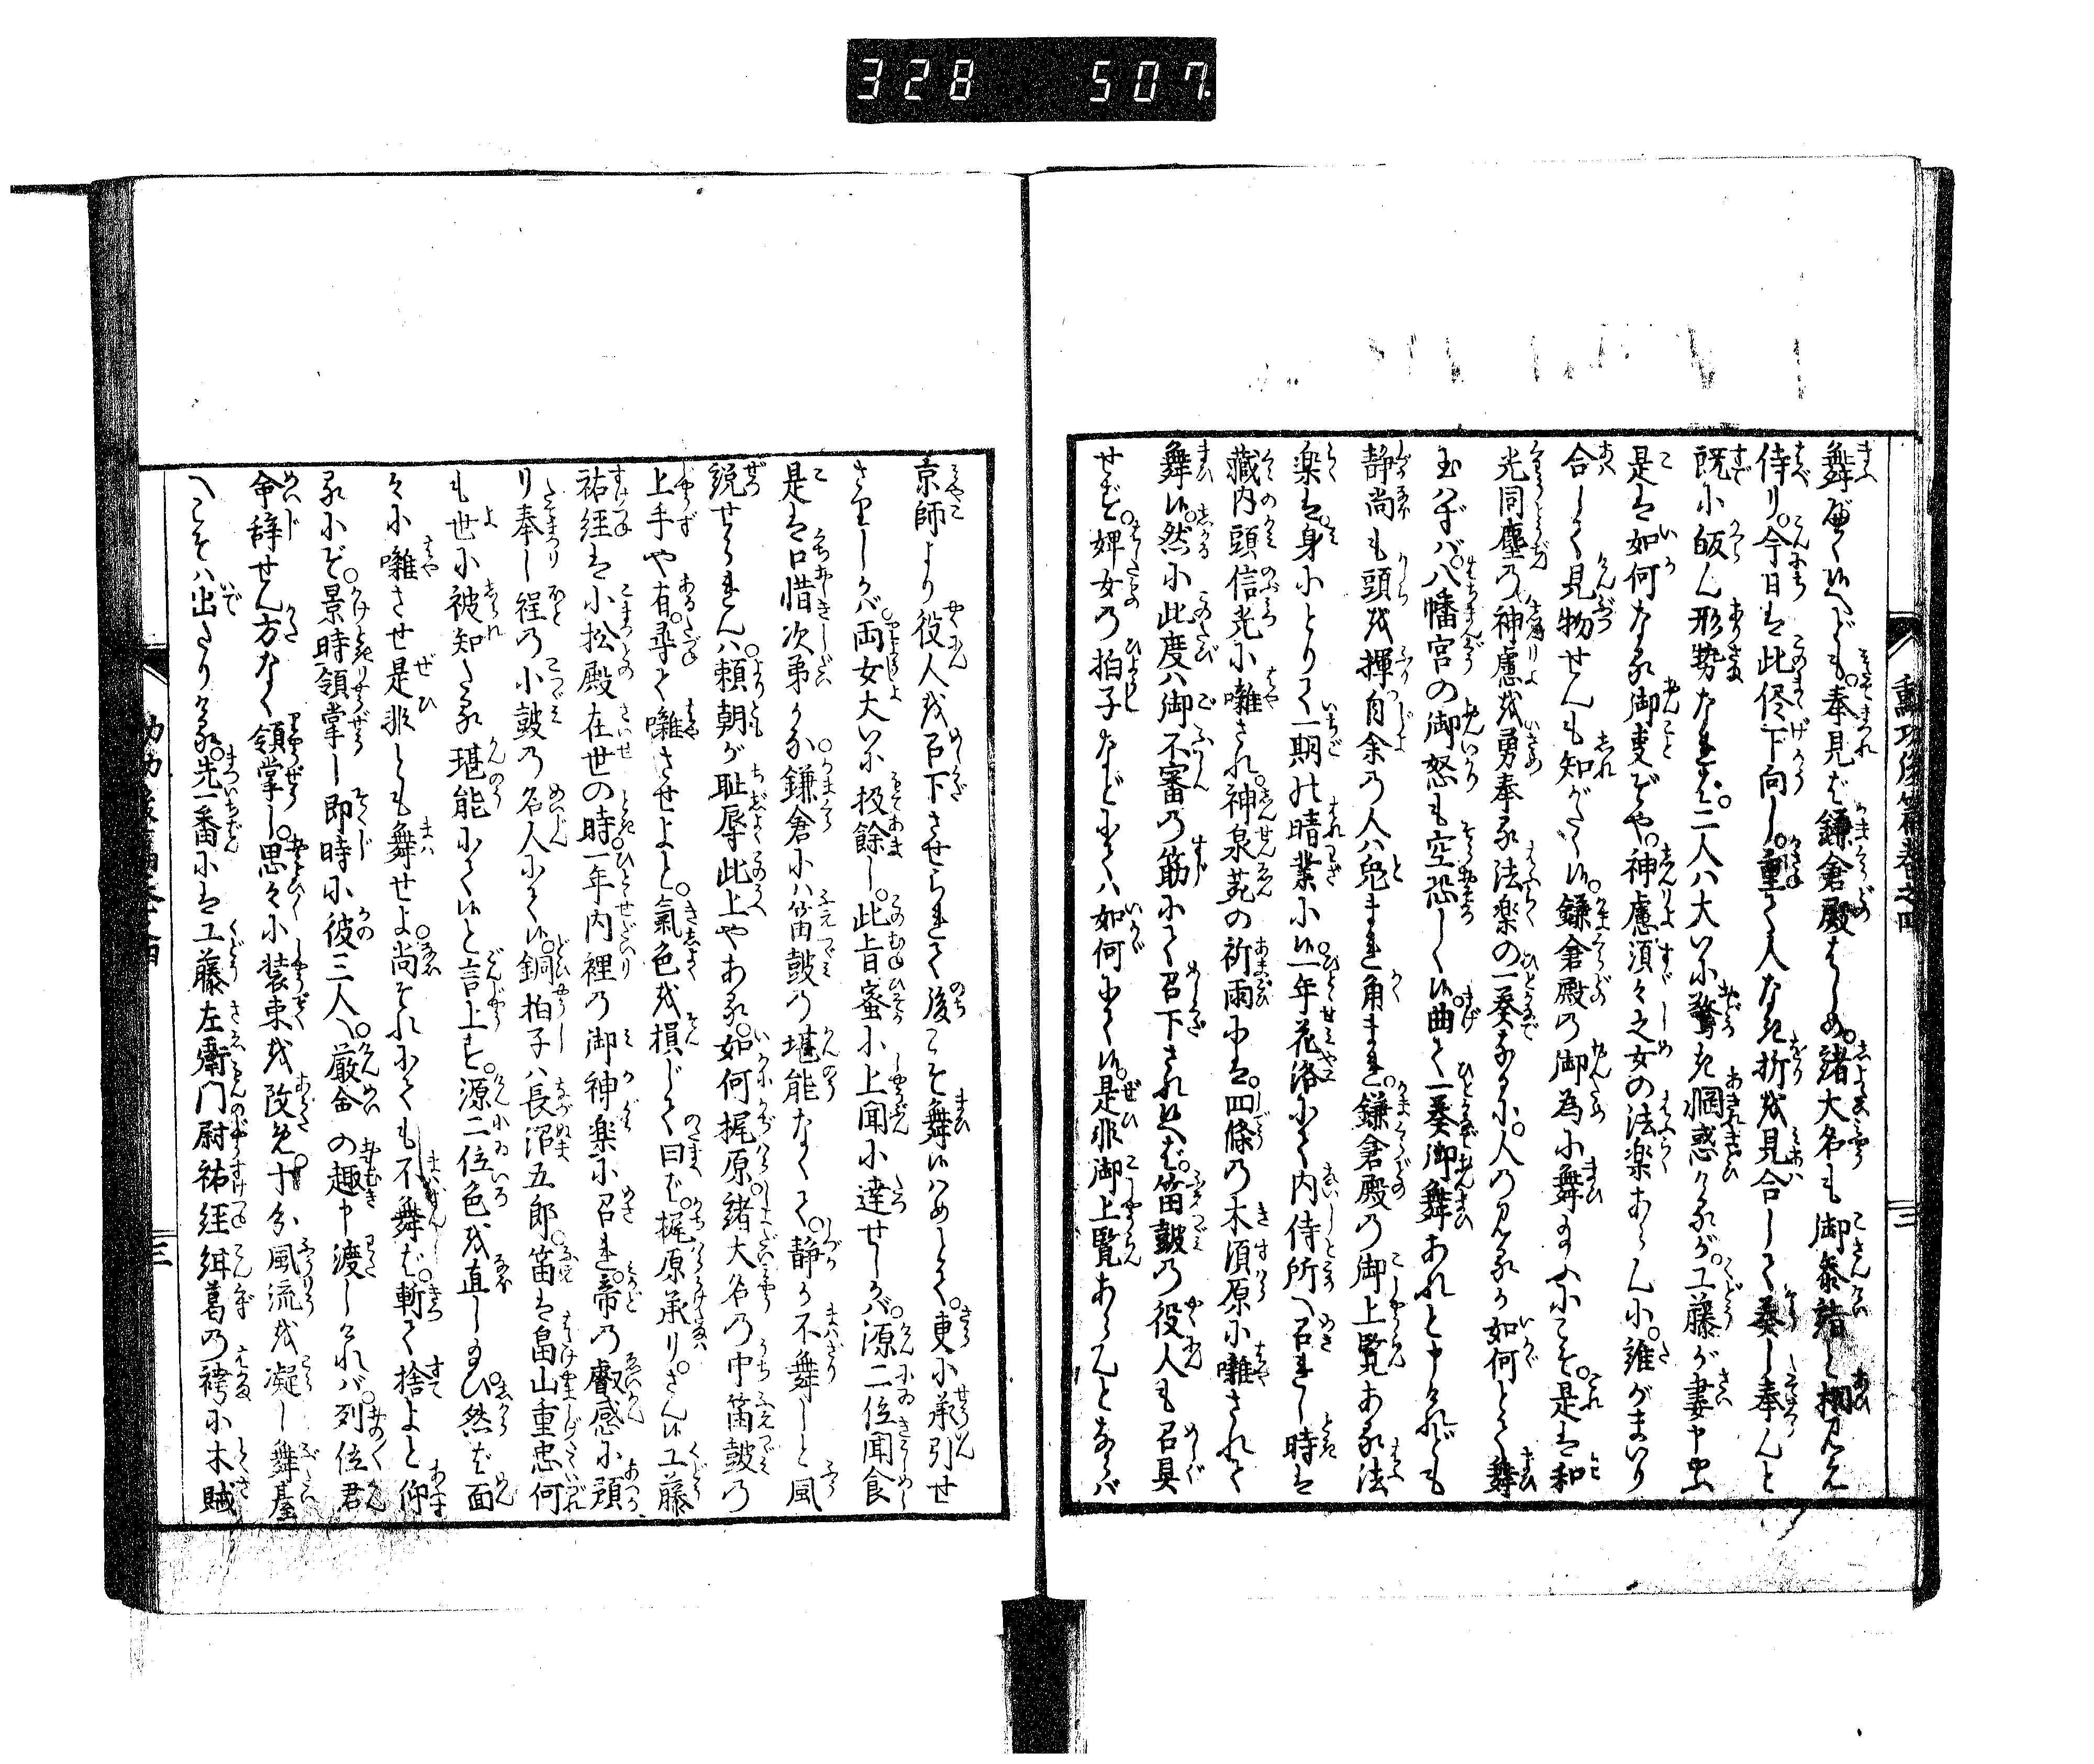 328 507.
勲功後篇巻之四
三
舞べく候へども。奉見ば鎌倉殿はじめ。諸大名も御参詣と相見え
侍り。今日は此侭下向し。重て人なき折を見合して奏し奉んと
既に皈ん形勢なれば。二人ハ大いに驚き惘惑けるが。工藤が妻申ふ
是は如何なる御事ぞや。神慮須々之女の法楽あらんに。誰がまいり
合して見物せんも知がたく候。鎌倉殿の御為に舞給ふにこそ。是は和
光同塵の神慮を勇奉る法楽の一奏なるに。人の見るか如何とて舞
玉はずバ。八幡宮の御怒も空恐しく候。曲て一奏御舞あれと申けれども
静尚も頭を揮自余の人ハ兎まれ角まれ。鎌倉殿の御上覧ある法
楽は。身にとりて一期の晴業に候。一年花洛にて内侍所へ召れし時は
藏内頭信光に囃され。神泉苑の祈雨には。四條の木須原に囃されて
舞候。然に此度ハ御不審の筋にて召下され候へば。笛鼓の役人も召具
せず。婢女の拍子などにてハ如何にて候。是非御上覧あらんとならバ
京師より役人を召下させられて後こそ舞候ハめとて。更に承引せ
ざりしかバ。両女大いに扱餘し。此旨蜜に上聞に達せしかバ。源二位聞食
是は口惜次第かな鎌倉にハ笛鼓の堪能なくて。静か不舞しと風
説せられんハ。頼朝が耻辱此上やある。如何梶原諸大名の中笛鼓の
上手や有。尋て囃させよと。氣色を損じて曰ば。梶原承り。さん候工藤
祐經は小松殿在世の時。一年内裡の御神楽に召れ。帝の叡感に預
り奉し程の小鼓の名人にて候。銅拍子ハ長沼五郎。笛は畠山重忠何
も世に被知たる堪能にて候と言上す。源二位色を直し給ひ然ば面
々に囃させ是非とも舞せよ。尚それにても不舞ば。斬て捨よと仰
るにぞ。景時領掌し即時に彼三人へ。厳命の趣申渡しけれバ。列位君
命辞せん方なく領掌し。思々に装束を改め。十分風流を凝し舞臺
へこそハ出たりける。先一番には工藤左衛門尉祐経絹葛の袴に木賊
三